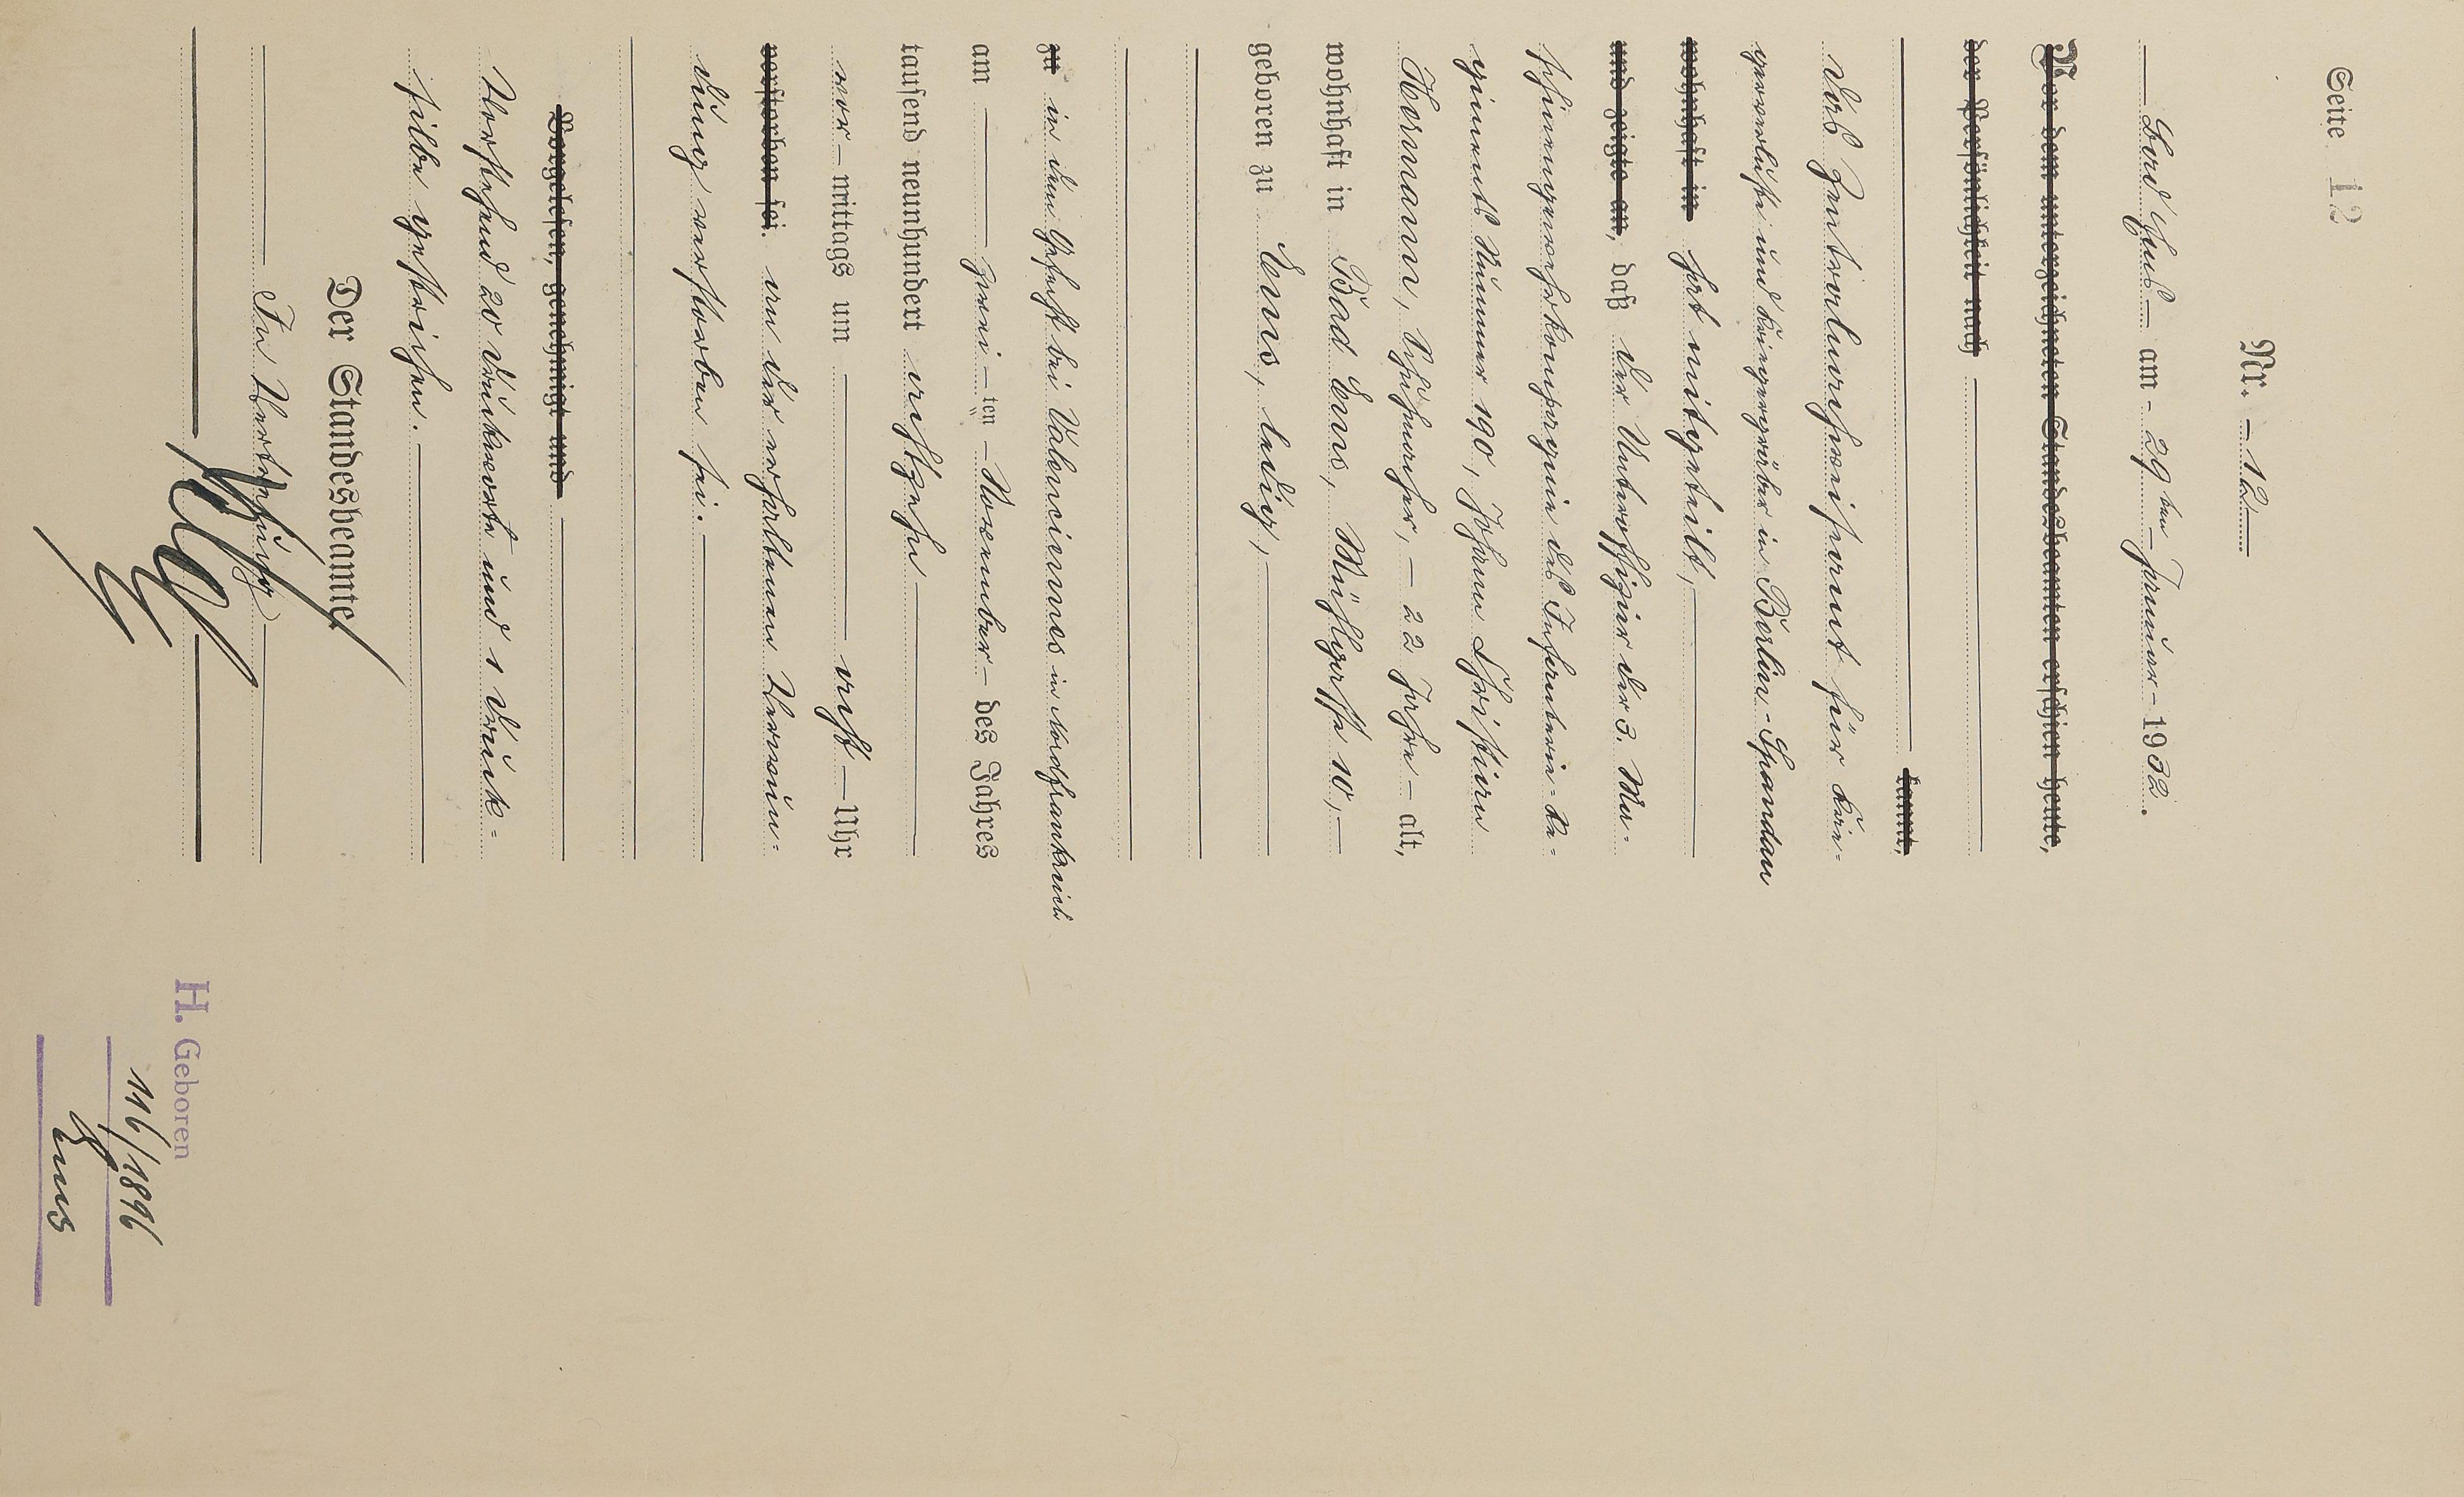 Seite 12
Nr. – 12 —
— Bad Ems – am – 29 ten – Januar – 1932.
Vor dem unterzeichneten Standesbeamten erschien heute,
der Persönlichkeit nach
kannt,
Das Zentralnachweiseamt für Krie-
gerverluste und Kriegergräber in Berlin-Spandau
wohnhaft in hat mitgeteilt,
und zeigte an, daß der Unteroffizier der 3. Ma-
schinengewehrkompagnie des Infanterie-Re-
giments Nummer 190, Johann Christian
Hermann, Schuhmacher, – 22 Jahre – alt,
wohnhaft in Bad Ems, 10, –
geboren zu Ems, ledig,
zu in dem Gefecht bei Valenciennes in Nordfrankreich
am — zwei – ten – November – des Jahres
tausend neunhundert achtzehn
vor – mittags um — acht — Uhr
verstorben sei. an der erhaltenen Verwun-
dung verstorben sei.
Vorgelesen, genehmigt und
Vorstehend 20 Druckworte und 1 Druck-
silbe gestrichen.
Der Standesbeamte
In Vertretung
H. Geboren
116/1896
Ems